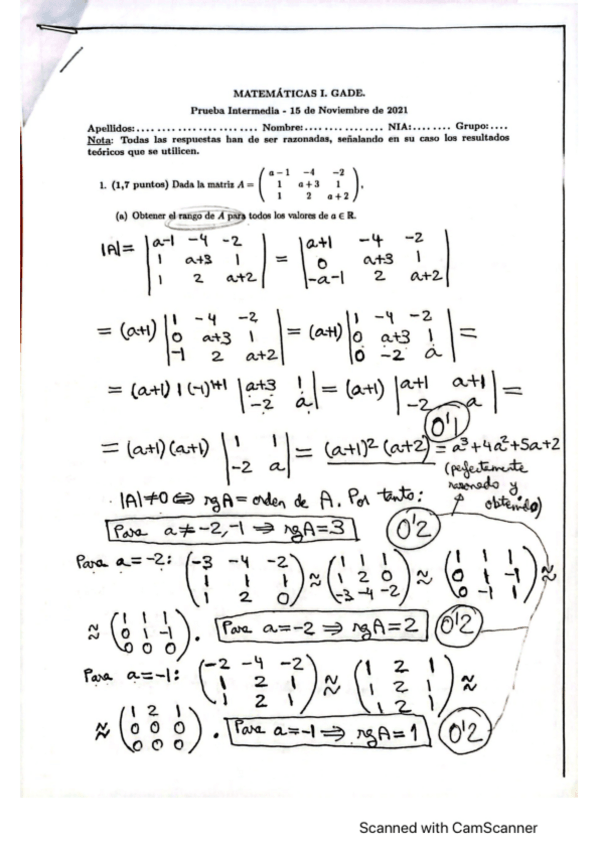 MATEMÁTICAS I. GADE.
Prueba Intermedia - 15 de Noviembre de 2021
Apellidos:........................ Nombre:............... NIA:........ Grupo:....
Nota: Todas las respuestas han de ser razonadas, señalando en su caso los resultados
teóricos que se utilicen.
1. (1,7 puntos) Dada la matriz A = ( a−1 −4 −2 ; 1 a+3 1 ; 1 2 a+2 ).
(a) Obtener el rango de A para todos los valores de a ∈ R.
|A| = | a-1 -4 -2 ; 1 a+3 1 ; 1 2 a+2 | = | a+1 -4 -2 ; 0 a+3 1 ; -a-1 2 a+2 |
= (a+1) | 1 -4 -2 ; 0 a+3 1 ; -1 2 a+2 | = (a+1) | 1 -4 -2 ; 0 a+3 1 ; 0 -2 a | =
= (a+1) 1 (-1)^1+1 | a+3 1 ; -2 a | = (a+1) | a+1 a+1 ; -2 a | =
0'1
= (a+1)(a+1) | 1 1 ; -2 a | = (a+1)² (a+2) = a³+4a²+5a+2
(perfectamente
razonado y
obtenido)
· |A|≠0 ⇔ rgA = orden de A. Por tanto:
Para a≠-2,-1 ⇒ rgA=3 0'2
Para a=-2: ( -3 -4 -2 ; 1 1 1 ; 1 2 0 ) ≈ ( 1 1 1 ; 1 2 0 ; -3 -4 -2 ) ≈ ( 1 1 1 ; 0 1 -1 ; 0 -1 1 ) ≈
≈ ( 1 1 1 ; 0 1 -1 ; 0 0 0 ). Para a=-2 ⇒ rgA=2 0'2
Para a=-1: ( -2 -4 -2 ; 1 2 1 ; 1 2 1 ) ≈ ( 1 2 1 ; 1 2 1 ; 1 2 1 ) ≈
≈ ( 1 2 1 ; 0 0 0 ; 0 0 0 ). Para a=-1 ⇒ rgA=1 0'2
Scanned with CamScanner